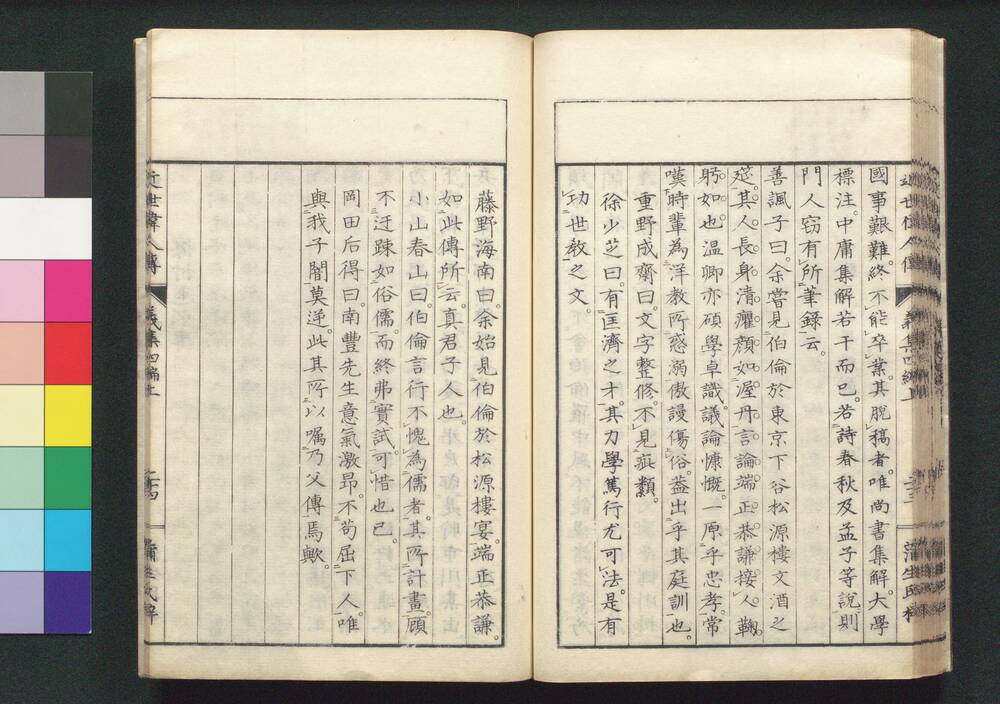 國事艱難。終不能卒業。其脫稿者。唯尚書集解。大學
標注。中庸集解若干而已。若詩春秋及孟子等說。則
門人窃有所筆錄云。
善諷子曰。余嘗見伯倫於東京下谷松源樓文酒之
筵。其人長身清癯。顏如渥丹。言論端正。恭謙接人。鞠
躬如也。溫卿亦碩學卓識。議論慷慨。一原乎忠孝。常
嘆時輩為洋教所惑溺傲謾傷俗。蓋出乎其庭訓也。
重野成齋曰。文字整修。不見疵纇。
徐少芝曰。有匡濟之才。其力學篤行尤可法。是有
功世教之文。
藤野海南曰。余始見伯倫於松源樓宴。端正恭謙。
如此傳所云。真君子人也。
小山春山曰。伯倫言行不愧為儒者。其所計畫。頗
不迂踈如俗儒。而終弗實試。可惜也已。
岡田后得曰。南豐先生意氣激昂。不苟屈下人。唯
與我子闇莫逆。此其所以嘱乃父傳焉歟。
近世偉人傳
義集四編上
二十四
蒲生氏梓